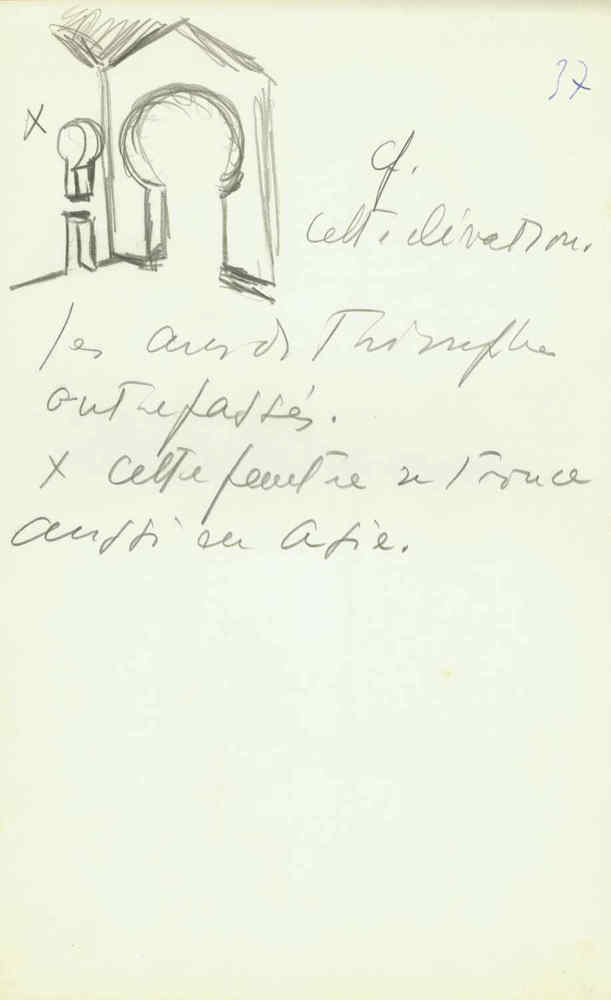 37
X
cf.
cette élévation.
les arcs de Triomphe
outrepassés.
X cette fenêtre se trouve
aussi en Asie.